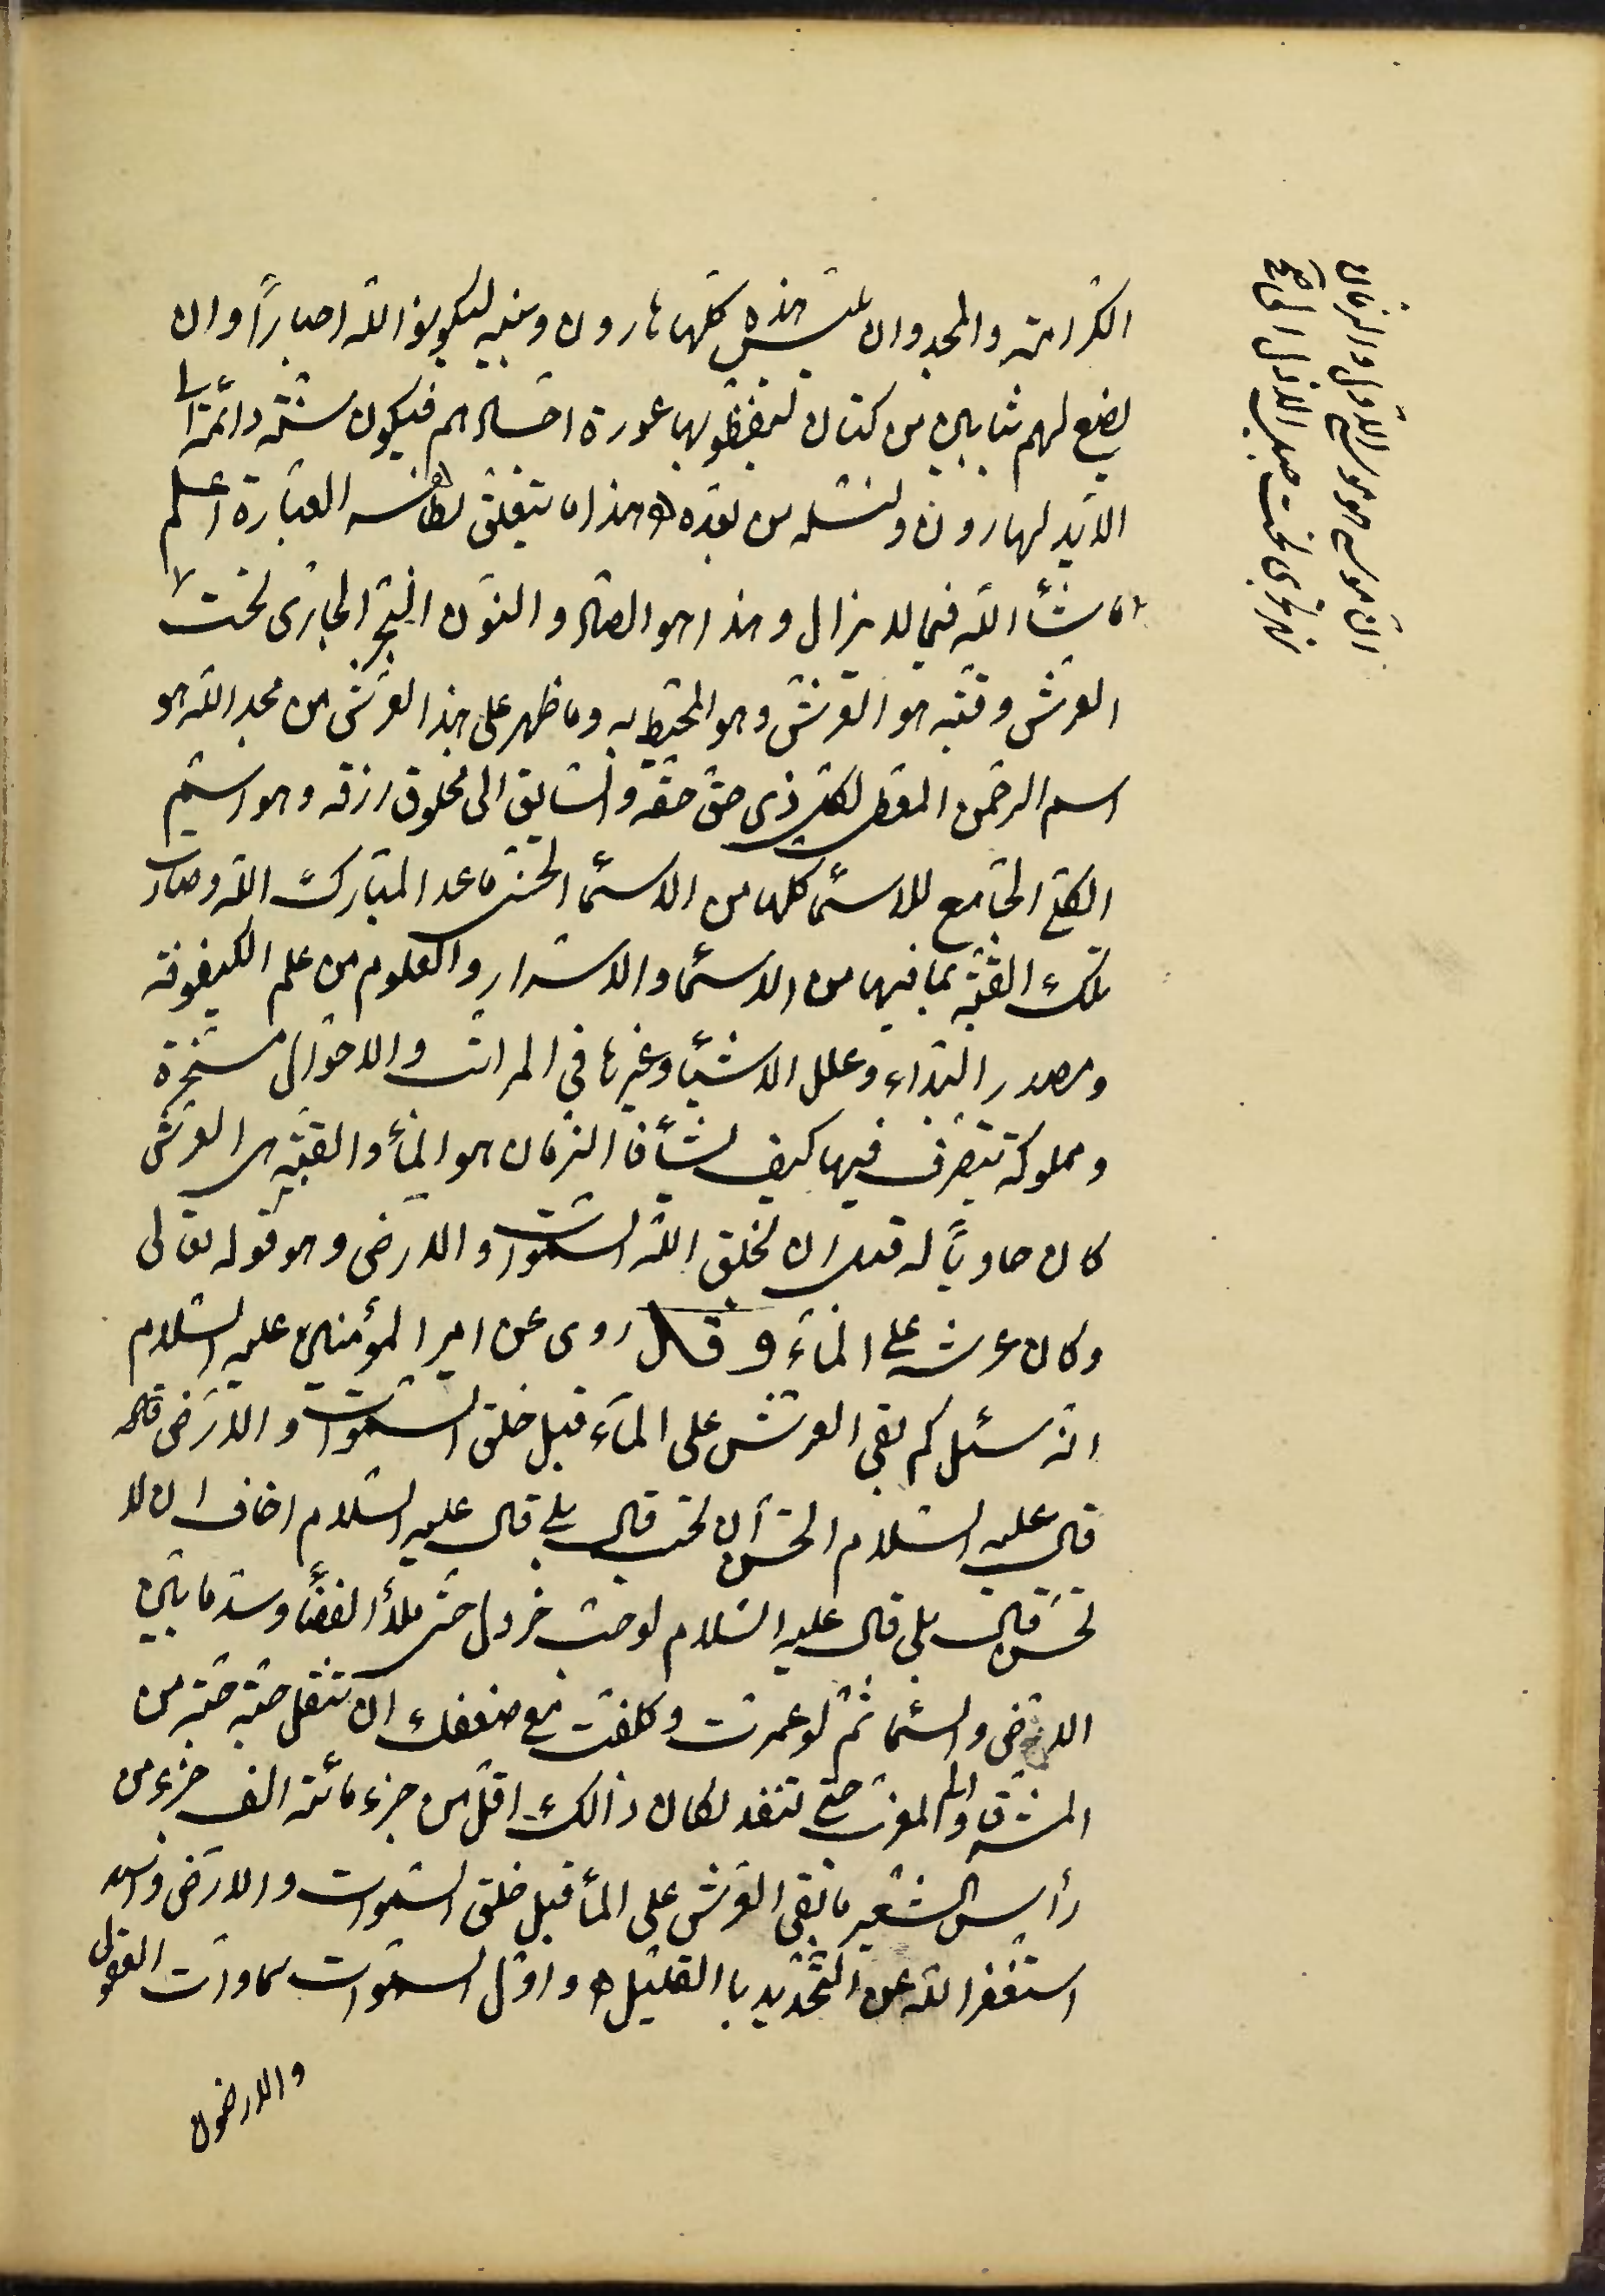 الكرامة والمجد وان يلبس هذه كلها هارون وبنيه ليكونوا لله احباراً وان
يضع لهم ثيابين من كتان ليغطوا بها عورة اجسادهم فيكون سنّة دائمة الى
الابد لهارون ولنسله من بعده هذا ما يتعلق بظاهر العبارة اعلم
ما شأ الله فيما لا يزال وهذا هو الصاد والنون البحر الجارى تحت
العرش وقبّه هو العرش وهو المحيط به وما ظهر على هذا العرش من مجد الله هو
اسم الرحمن المعطى لكل ذى حق حقه والسابق الى مخلوق رزقه وهو اسم
الكلى الجامع للاسمأ كلها من الاسمأ الحسنى ما عدا المبارك الله وصارت
تلك القبّة بما فيها من الاسمأ والاسرار والعلوم من علم الكيفوفة
ومصدر البداء وعلل الاشيأ وغيرها فى المراتب والاحوال مسخرة
ومملوكة يتصرف فيها كيف يشأ فالزمان هو المأ والقبّة هى العرش
كان حاوياً له قبل ان يخلق الله السموات والارض وهو قوله تعالى
وكان عرشه على المآء وقد روى عن امير المؤمنين عليه السلام
انه سئل كم بقى العرش على المآء قبل خلق السموات والارض
قال عليه السلام اتحسن ان تحسب قال بلى قال عليه السلام اخاف ان لا
تحسن قال بلى قال عليه السلام لو صب خردل حتى ملأ الفضأ وسد ما بين
الارض والسمأ ثم لو عمرت وكلفت مع ضعفك ان تنقل حبة حبة من
المشرق الى المغرب حتى تنفد لكان ذالك اقل من جزء مائة الف جزء من
رأس الشعير ما بقى العرش على المأ قبل خلق السموات والارض و
استغفر الله عن التحديد باالقليل ه واول السموات سماوات العقول
والارضون